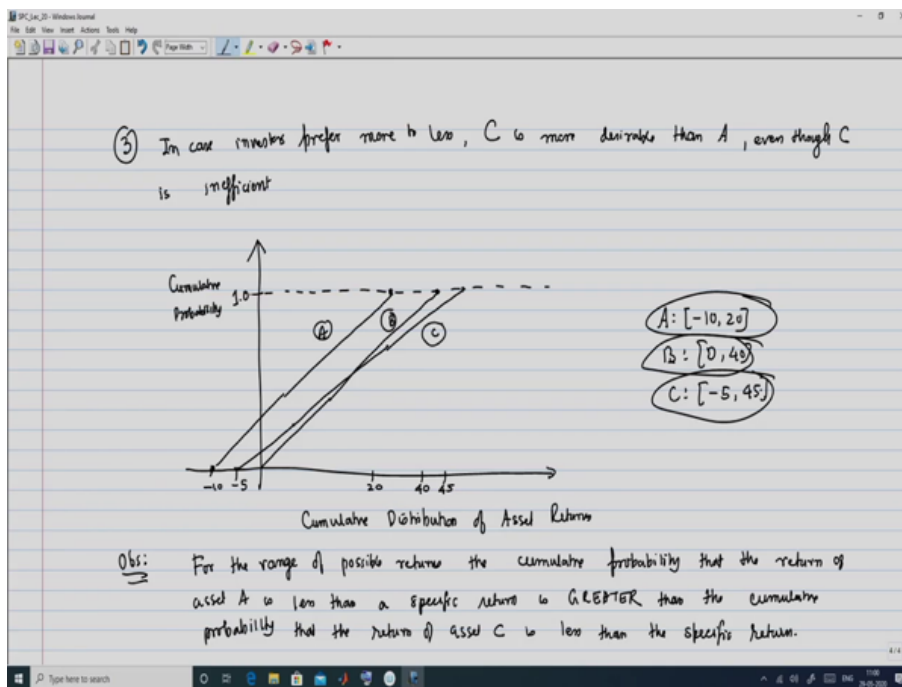 SPC_Lec_20 - Windows Journal
File Edit View Insert Actions Tools Help
Page Width
③ In case investors prefer more to less, C is more desirable than A, even though C
is inefficient
Cumulative
Probability
1.0
A
B
C
A: [-10, 20]
B: [0, 40]
C: [-5, 45]
-10 -5 20 40 45
Cumulative Distribution of Asset Returns
Obs: For the range of possible returns the cumulative probability that the return of
asset A is less than a specific return is GREATER than the cumulative
probability that the return of asset C is less than the specific return.
4/4
Type here to search
ENG
11:00
29-05-2020